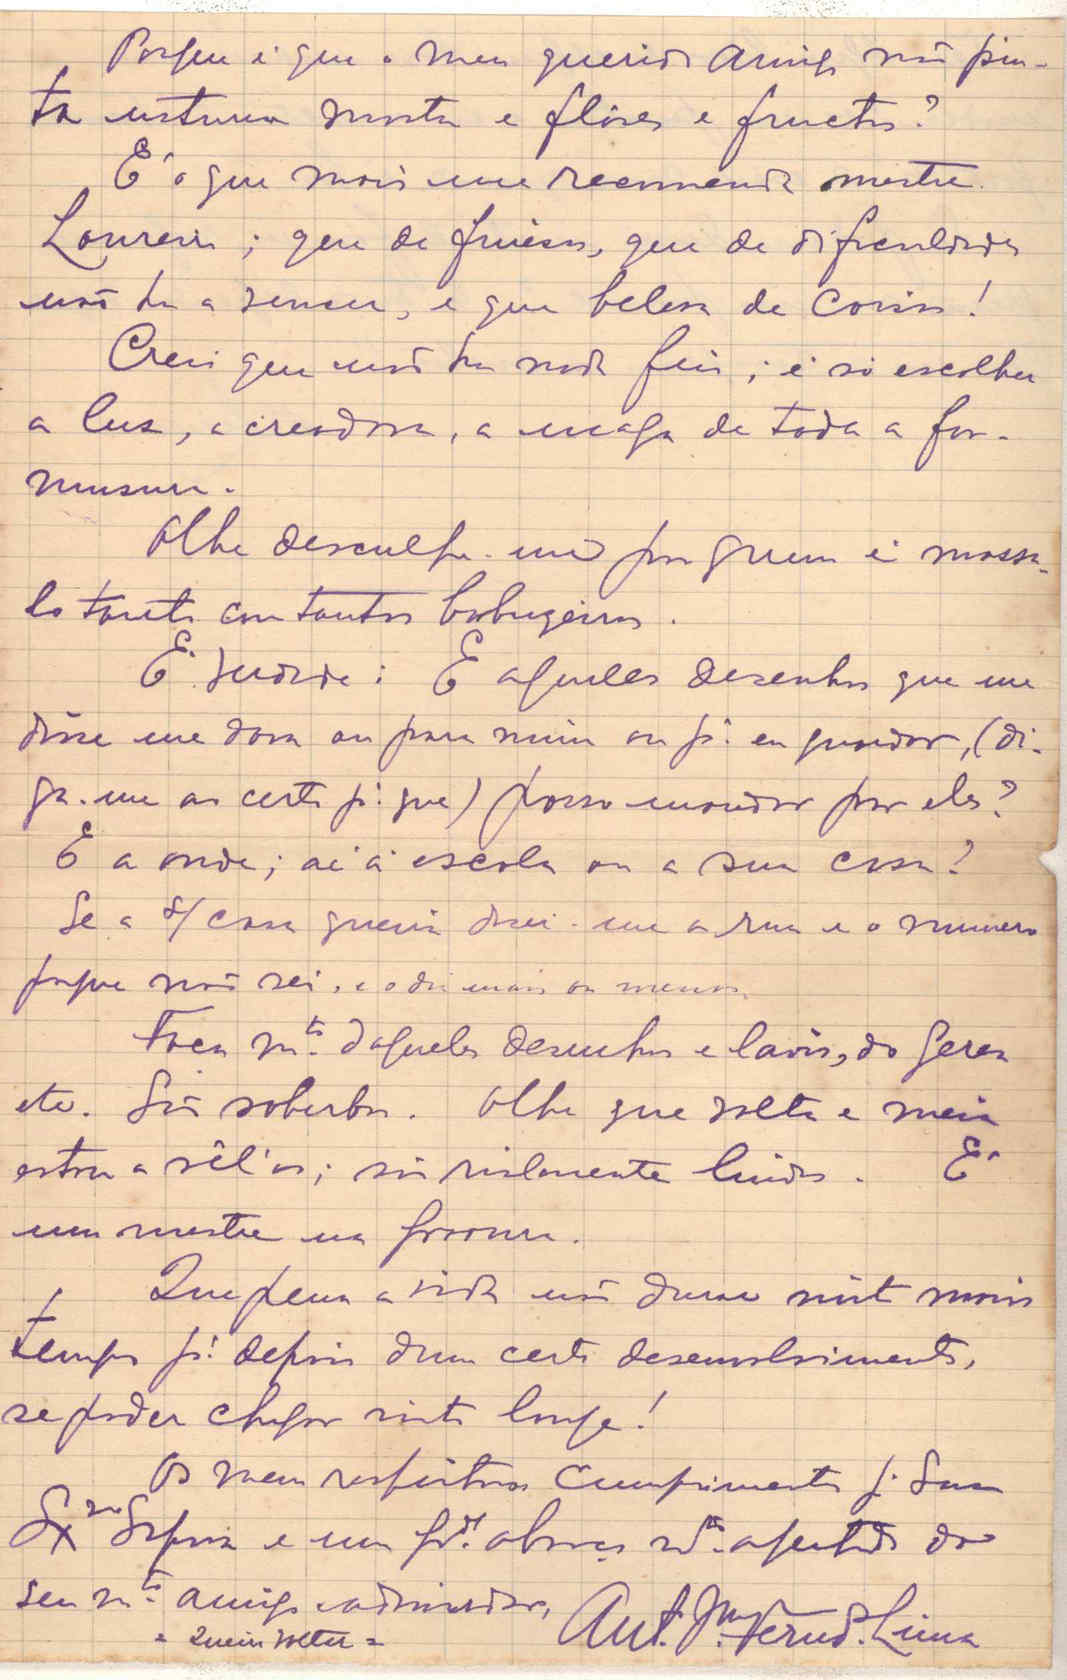 Porque é que o meu querido Amigo não pin-
ta natureza morta e flôres e fructos?
É o que mais me recomenda mestre
Loureiro; que de finesas, que de dificuldades
não ha a vencer, e que belesa de coisas!
Creio que não ha nada feio; é só escolher
a luz, a creadora, a maga de toda a for-
mosura.
Olhe desculpe-me porquem é massa-
lo tanto com tantas babugeiras.
É verdade: E aqueles desenhos que me
disse me dava ou para mim ou p.ª eu guardar, (di-
ga-me ao certo p.ª que) posso mandar por eles?
E a onde; ai á escola ou a sua casa?
Se a s/ casa queira dizer-me a rua e o numero
porque não sei, e o dia mais ou menos.
Faça m.tos daqueles desenhos e lavis, do Gerez
etc. São soberbos. Olhe que volta e meia
estou a vêl'os; são rialmente lindos. É
um mestre na
Que pena a vida não durar muito mais
tempo p.ª depois dum certo desenvolvimento,
se poder chegar muito longe!
Os meus respeitosos cumprimentos p.ª Sua
Ex.ma Esposa e um gd.e abraço m.to apertado do
seu m.to amigo e admirador,
Ant. Fernd. Lima
= Queira voltar =